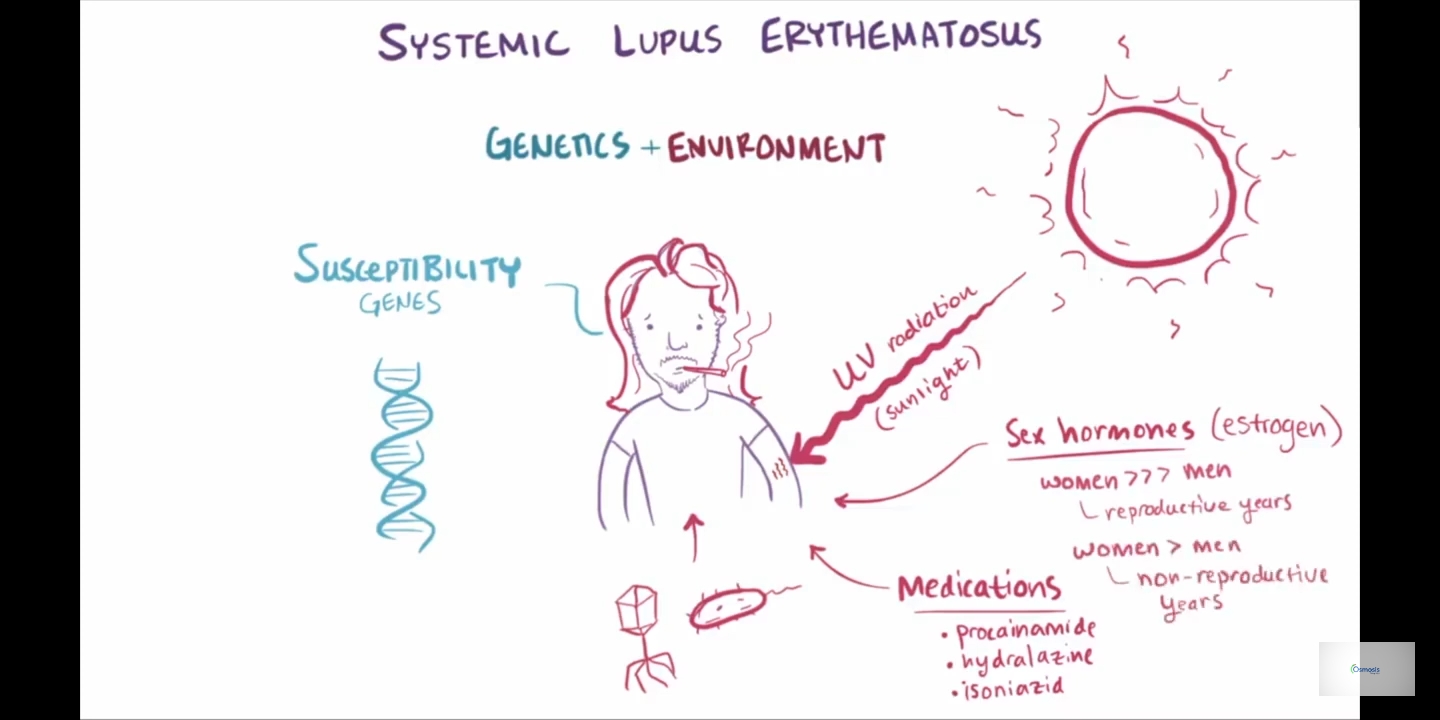 SYSTEMIC LUPUS ERYTHEMATOSUS
GENETICS + ENVIRONMENT
SUSCEPTIBILITY
GENES
UV radiation
(sunlight)
Sex hormones (estrogen)
women >>> men
reproductive years
women > men
non-reproductive
years
Medications
• procainamide
• hydralazine
• isoniazid
Osmosis